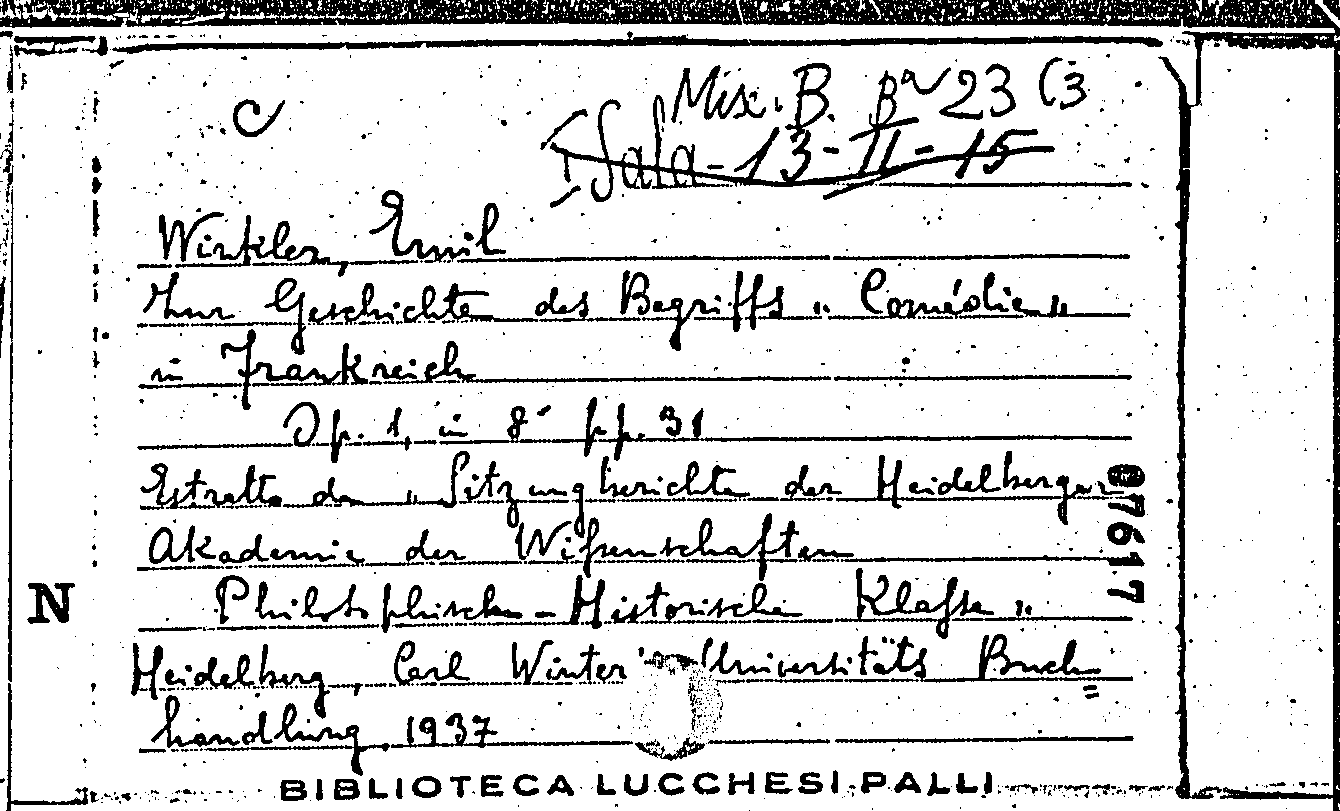 Misc. B. Ba 23 (3
I Sala - 13 - II - 15
Winkler, Emil
Zur Geschichte des Begriffs "Comédie"
in Frankreich
Op. 1, in 8° pp. 31
Estratto da "Sitzungberichte der Heidelberger
Akademie der Wissenschaften
Philosophische - Historische Klasse"
Heidelberg, Carl Winter's Universitäts Buch=
handlung, 1937
07617
N
BIBLIOTECA LUCCHESI-PALLI